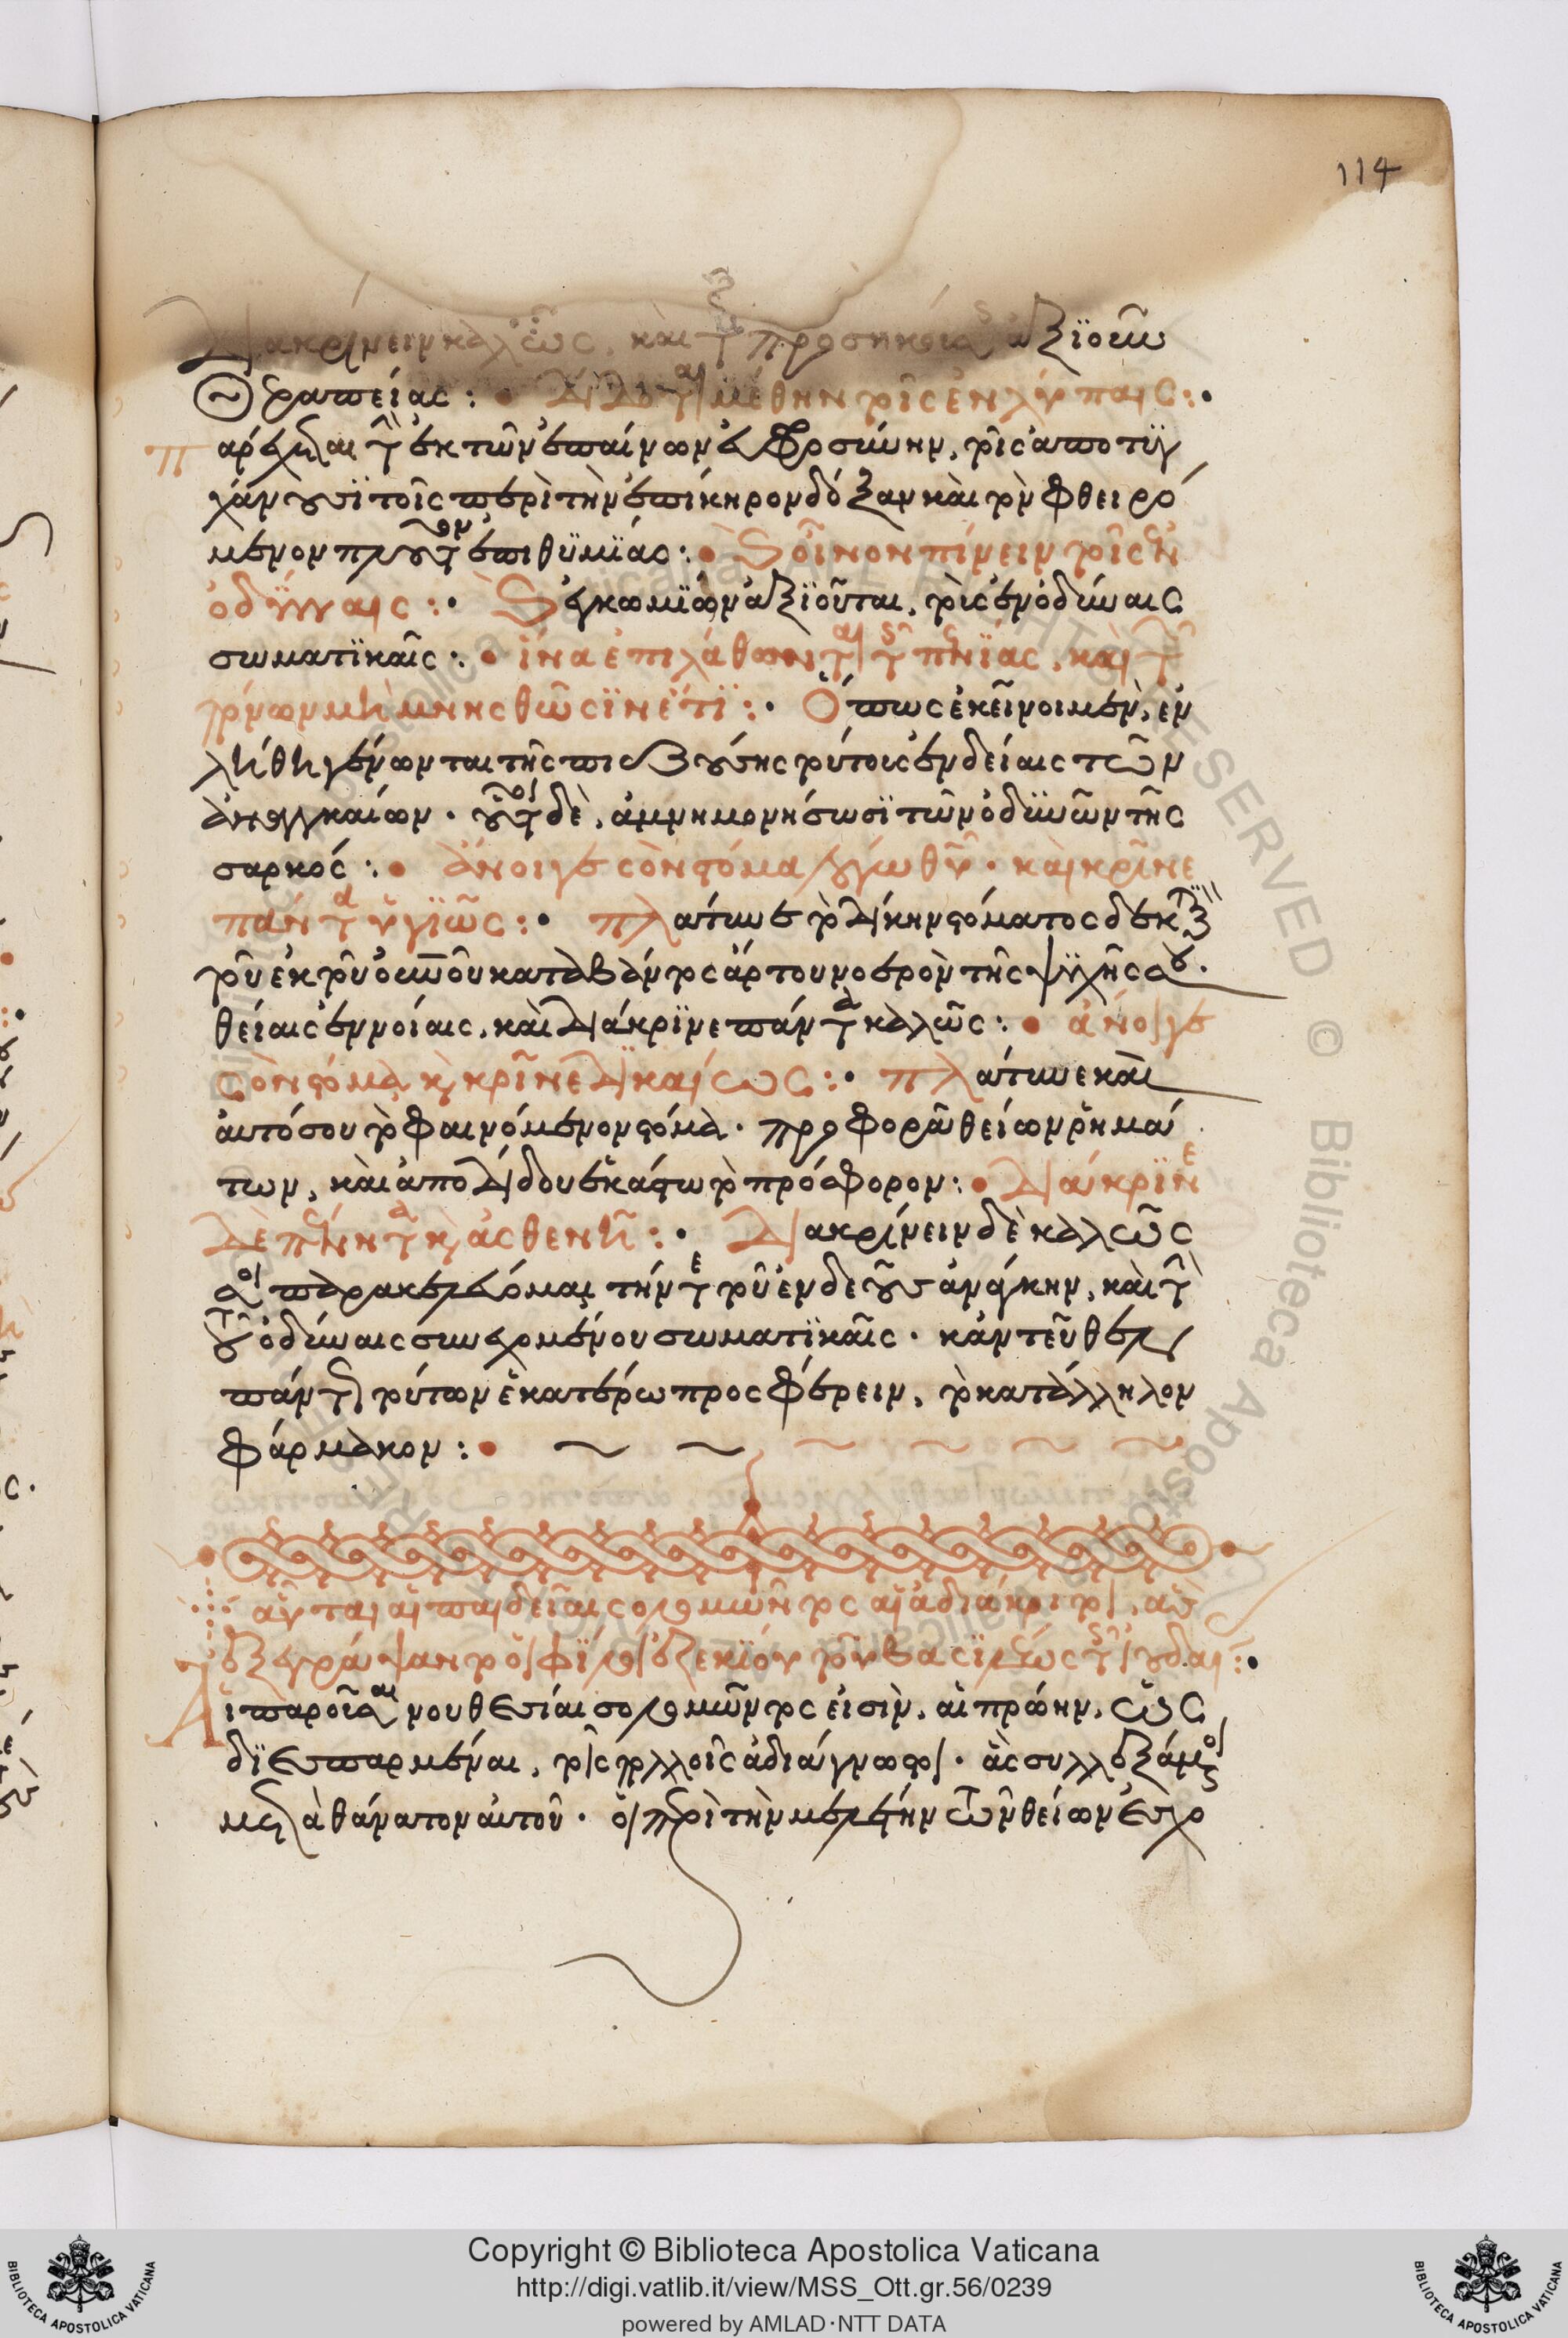 Διακρίνειν καλῶς, καὶ τ προσηκούσης ἀξιοῦν
θεραπείας: Δίδοτε μέθην τοῖς ἐν λύπαις:
Παρέχεται τὴν ἐκ τῶν ἐπαίνων εὐφροσύνην, τοῖς ἀποτυγ
χάνουσι τοῖς περὶ τὴν ἐπίκηρον δόξαν καὶ τὸν φθειρό
μενον πλοῦτον ἐπιθυμίας: καὶ οἶνον πίνειν τοῖς ἐν
ὀδύναις: καὶ ἐγκωμίων ἀξιοῦται, τοῖς ἐν ὀδύναις
σωματικαῖς: ἵνα ἐπιλάθωνται τῆς πενίας, καὶ τῶν
πόνων μὴ μνησθῶσιν ἔτι: Ὅπως ἐκεῖνοι μὲν, ἐν
λήθη γένωνται τῆς πιεζούσης τούτοις ἐνδείαις τῶν
ἀναγκαίων. οὗτοι δὲ, ἀμνημονήσωσι τῶν ὀδυνῶν τῆς
σαρκός: ἄνοιγε σὸν στόμα λόγω θεοῦ. καὶ κρῖνε
πάντα ὑγιῶς: πλάτυνε τὸ δίκην στόματος δεκτικὸν
τοῦ ἐκ τοῦ οὐρανοῦ καταβάντος ἄρτου νοερὸν τῆς ψυχῆς σου.
θείαις ἐννοίαις. καὶ διάκρινε πάντα καλῶς: ἄνοιγε
σὸν στόμα καὶ κρῖνε δικαίως: πλάτυνε καὶ
αὐτό σου τὸ φαινόμενον στόμα. προφορᾶ θείων ῥημά
των, καὶ ἀποδίδου ἑκάστω τὸ πρόσφορον: Διάκρινε
δὲ πένητα καὶ ἀσθενῆ: Διακρίνειν δὲ καλῶς
σοι παρακελεύομαι τήν τε τοῦ ἐνδεοῦς ἀνάγκην, καὶ τὴν
τοῦ ὀδύναις συνεχομένου σωματικαῖς. κἀντεῦθεν
πάντως τούτων ἑκατέρω προσφέρειν, τὸ κατάλληλον
φάρμακον:
αὗται αἱ παιδεῖαι σολομῶντος αἱ ἀδιάκριτοι, ἃς
ἐξεγράψαντο οἱ φίλοι ἐζεκίου τοῦ βασιλέως τῆς ἰουδαίας:
Αἱ παροῦσαι νουθεσίαι σολομῶντος εἰσὶν, αἱ πρώην, ὡς
διεσπαρμέναι, τοῖς πολλοῖς ἀδιάγνωστοι. ἃς συλλεξάμενοι
μετὰ θάνατον αὐτοῦ. οἱ περὶ τὴν μελέτην τῶν θείων ἐσχο
114
Copyright © Biblioteca Apostolica Vaticana
http://digi.vatlib.it/view/MSS_Ott.gr.56/0239
powered by AMLAD·NTT DATA